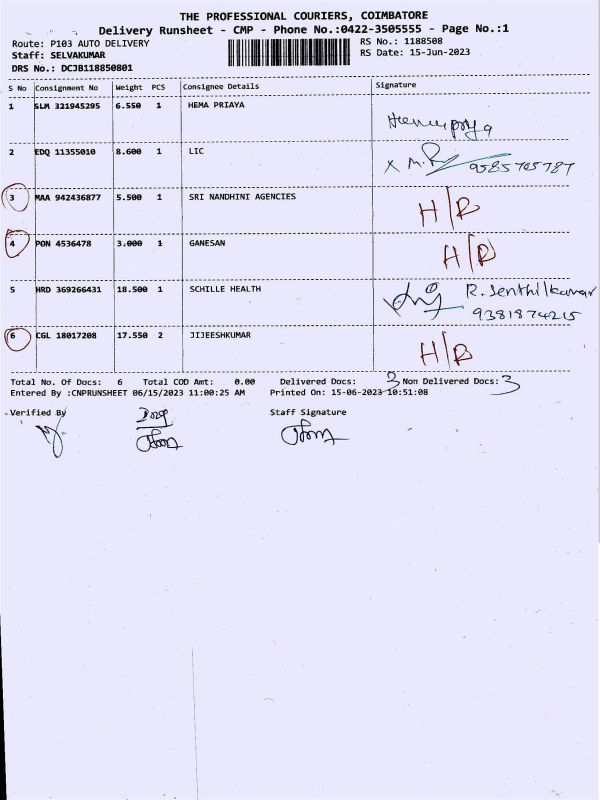 THE PROFESSIONAL COURIERS, COIMBATORE
Delivery Runsheet - CMP - Phone No.:0422-3505555 - Page No.:1
Route: P103 AUTO DELIVERY RS No.: 1188508
Staff: SELVAKUMAR RS Date: 15-Jun-2023
DRS No.: DCJB118850801
S No Consignment No Weight PCS Consignee Details Signature
1 SLM 321945295 6.550 1 HEMA PRIAYA
2 EDQ 11355010 8.600 1 LIC 9585765787
3 MAA 942436877 5.500 1 SRI NANDHINI AGENCIES H/R
4 PON 4536478 3.000 1 GANESAN H/R
5 HRD 369266431 18.500 1 SCHILLE HEALTH R. Senthilkumar
9381874215
6 CGL 18017208 17.550 2 JIJEESHKUMAR H/R
Total No. Of Docs: 6 Total COD Amt: 0.00 Delivered Docs: 3 Non Delivered Docs: 3
Entered By :CNPRUNSHEET 06/15/2023 11:00:25 AM Printed On: 15-06-2023 10:51:08
Verified By Staff Signature